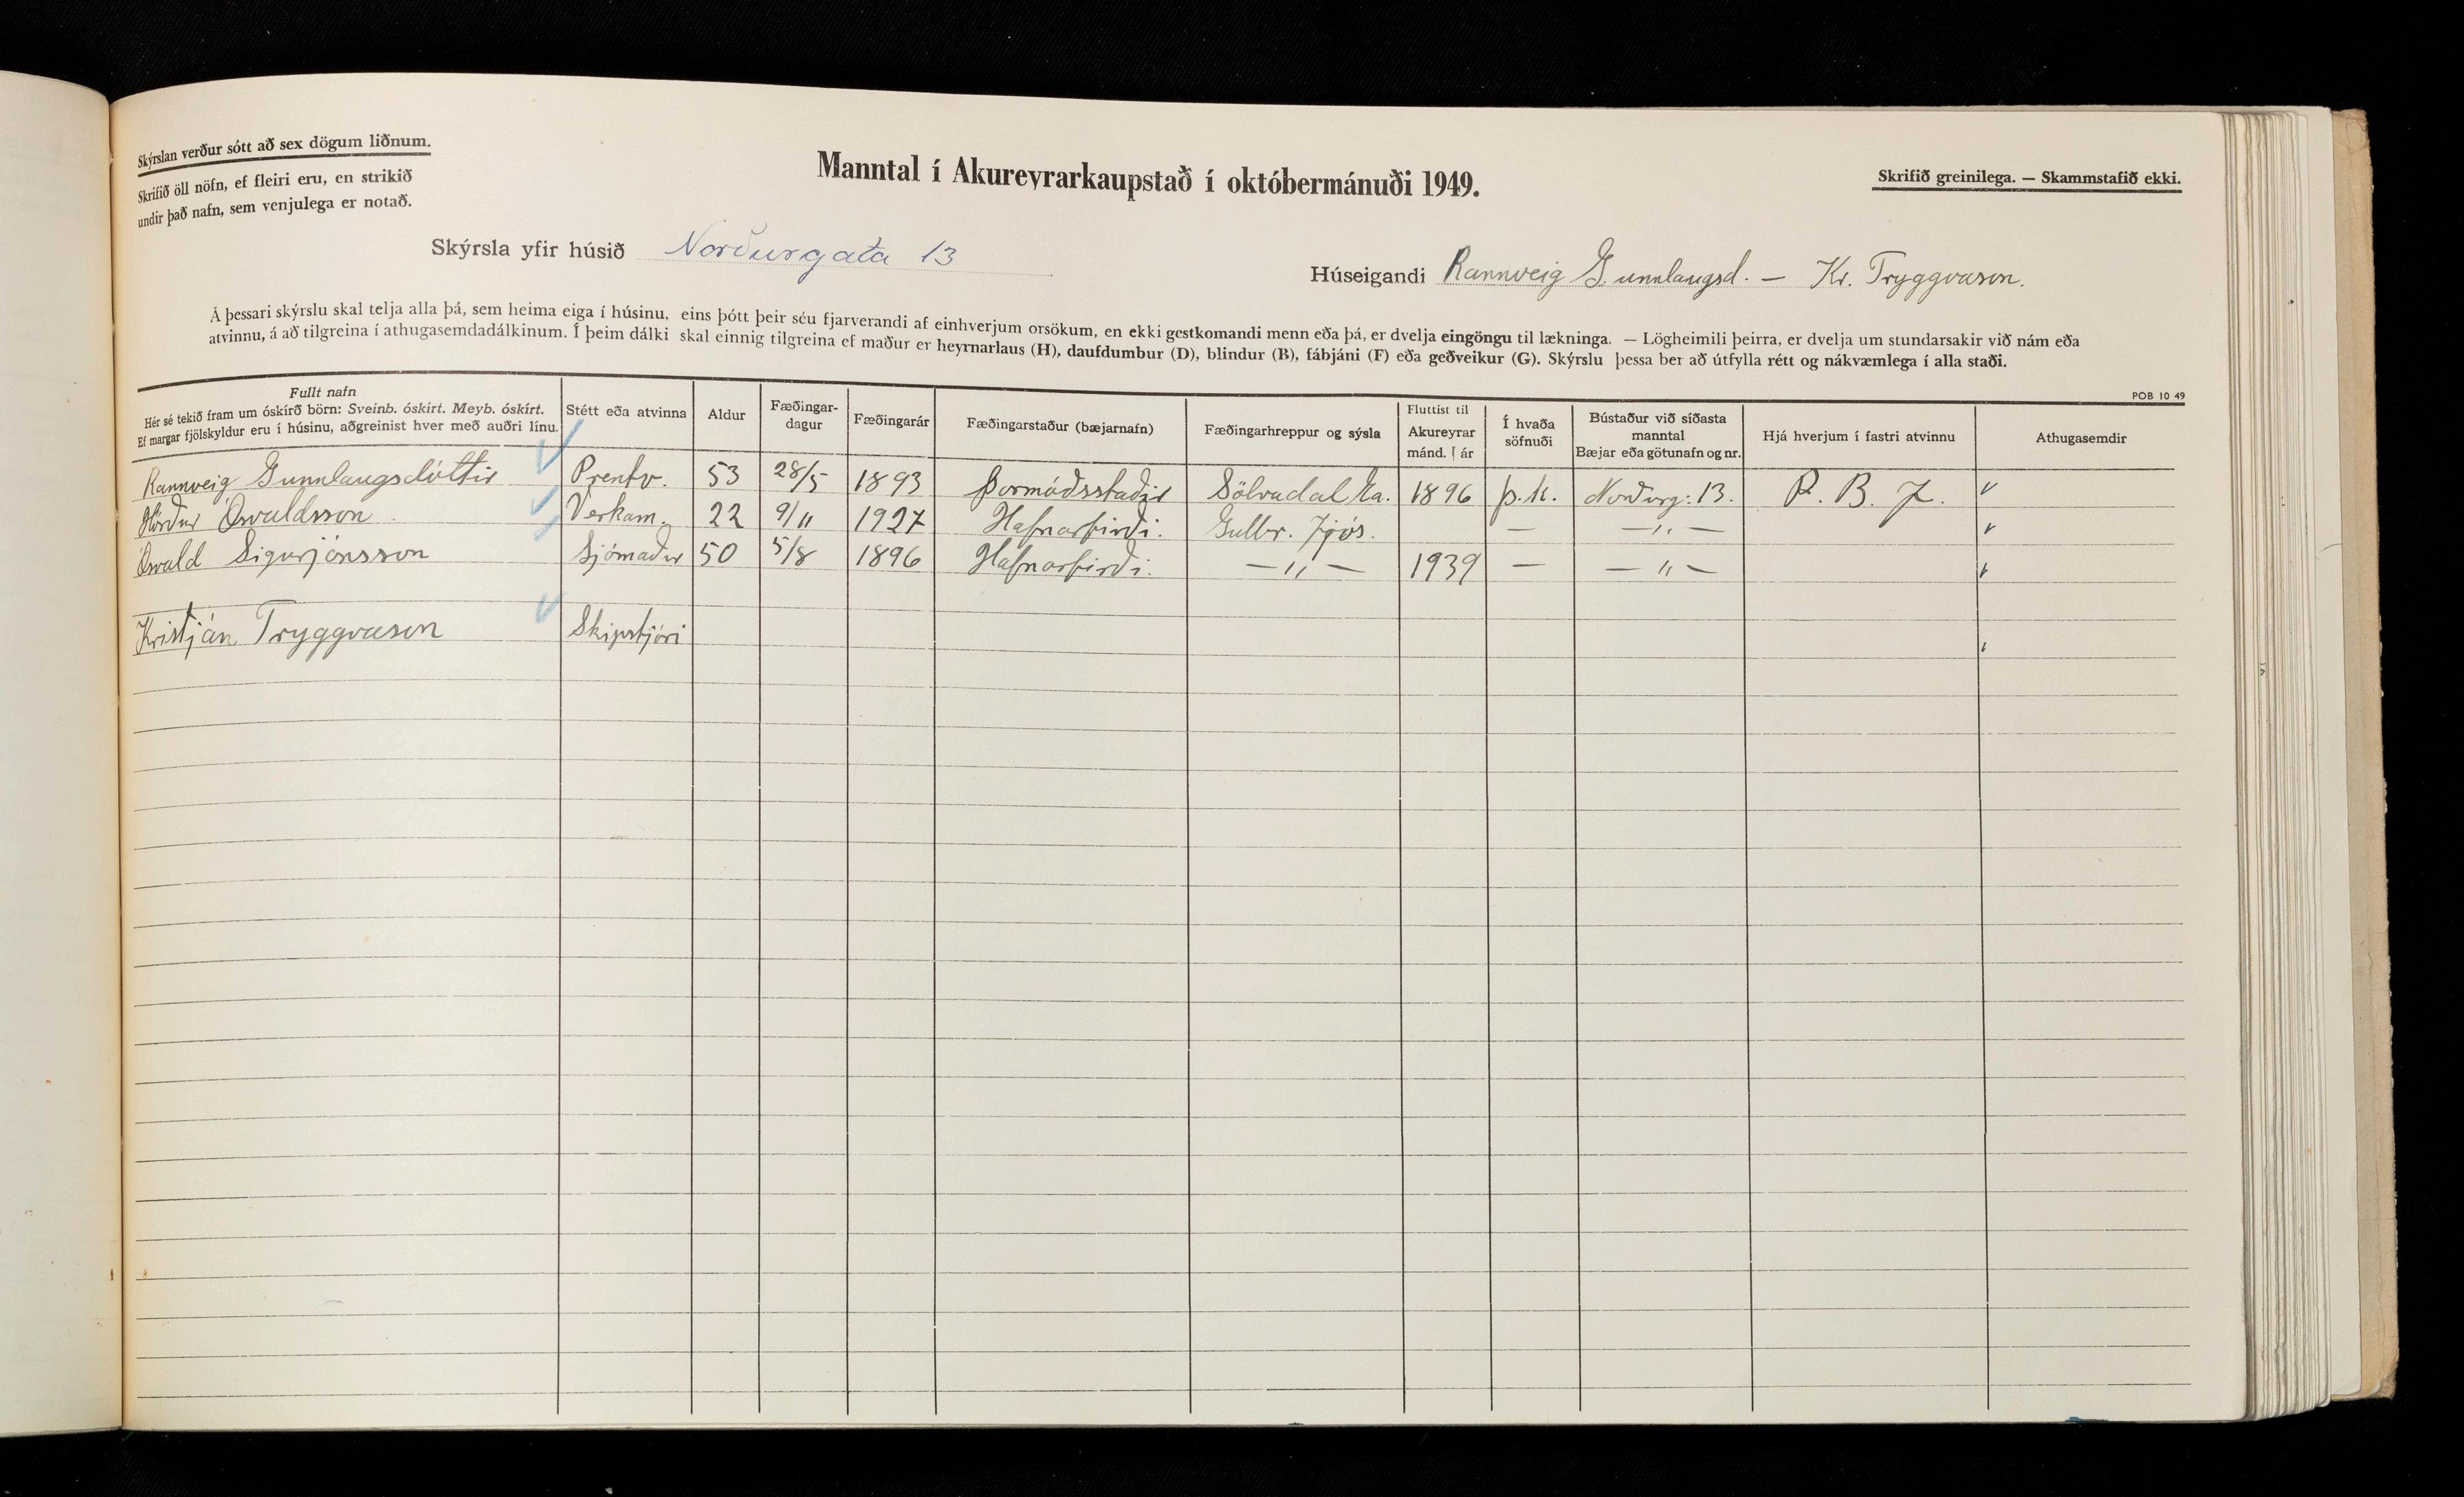 Skýrslan verður sótt að sex dögum liðnum.
Skrifið öll nöfn, ef fleiri eru, en strikið
undir það nafn, sem venjulega er notað.
Manntal í Akureyrarkaupstað í októbermánuði 1949.
Skrifið greinilega. — Skammstafið ekki.
Skýrsla yfir húsið Norðurgata 13
Húseigandi Rannveig Gunnlaugsd. — Kr. Tryggvason.
Á þessari skýrslu skal telja alla þá, sem heima eiga í húsinu, eins þótt þeir séu fjarverandi af einhverjum orsökum, en ekki gestkomandi menn eða þá, er dvelja eingöngu til lækninga. — Lögheimili þeirra, er dvelja um stundarsakir við nám eða
atvinnu, á að tilgreina í athugasemdadálkinum. Í þeim dálki skal einnig tilgreina ef maður er heyrnarlaus (H), daufdumbur (D), blindur (B), fábjáni (F) eða geðveikur (G). Skýrslu þessa ber að útfylla rétt og nákvæmlega í alla staði.
POB 10 49
Fullt nafn
Hér sé tekið fram um óskírð börn: Sveinb. óskírt. Meyb. óskírt.
Ef margar fjölskyldur eru í húsinu, aðgreinist hver með auðri línu.
Stétt eða atvinna
Aldur
Fæðingar-
dagur
Fæðingarár
Fæðingarstaður (bæjarnafn)
Fæðingarhreppur og sýsla
Fluttist til
Akureyrar
mánd. | ár
Í hvaða
söfnuði
Bústaður við síðasta
manntal
Bæjar eða götunafn og nr.
Hjá hverjum í fastri atvinnu
Athugasemdir
Rannveig Gunnlaugsdóttir Prentv. 53 28/5 1893 Þormóðsstaðir Sölvadal Ea. 1896 þ.k. Norðurg: 13. P. B. J.
Hörður Ósvaldsson Verkam. 22 9/11 1927 Hafnarfirði. Gullbr. Kjós. — — " —
Ósvald Sigurjónsson Sjómaður 50 5/8 1896 Hafnarfirði. — " — 1939 — — " —
Kristján Tryggvason Skipstjóri